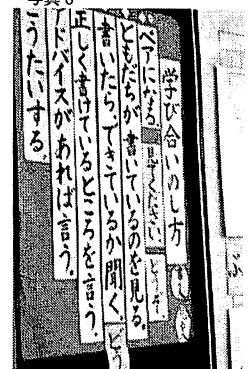 写真6
学び合いのし方
ペアになる。見てください。どうぞ。
ともだちが書いているのを見る。
書いたら、できているか聞く。どう
正しく書けているところを言う。
アドバイスがあれば言う。
こうたいする。